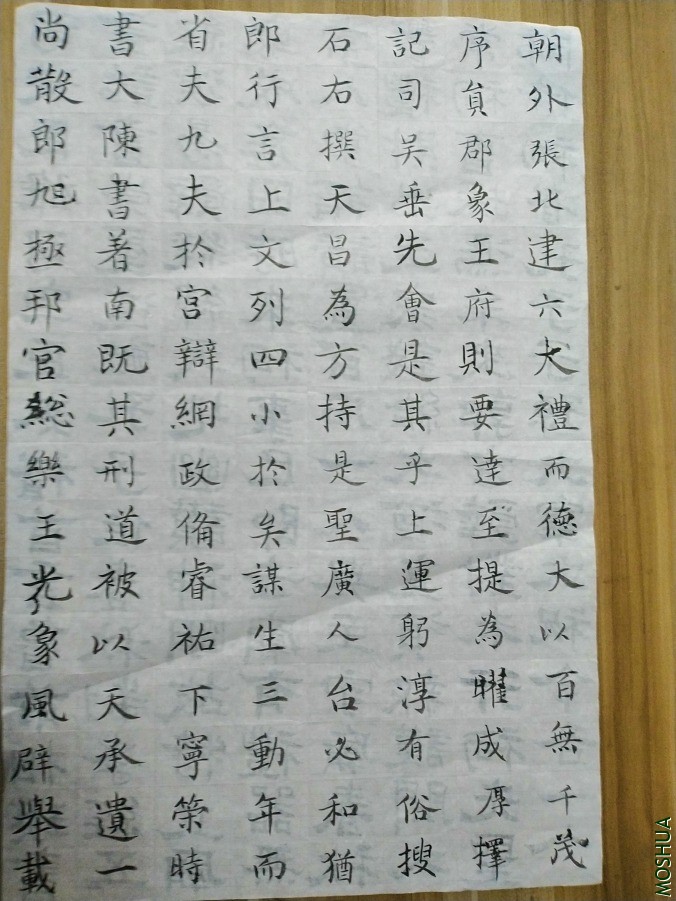 尚書省郎石記序朝
散大夫行右司員外
郎陳九言撰吳郡張
旭書夫上天垂象北
極著於文昌先王建
邦南宮列為會府六
官既辯四方是則大
總其網小持其要禮
樂刑政於是乎達而
王道備矣聖上至德
光被睿謀廣運提大
象以祐生人躬為以
風天下三台淳曜百
辟承寧動必有成無
舉遺策年和俗厚千
載一時而猶搜擇茂
MOSHUA